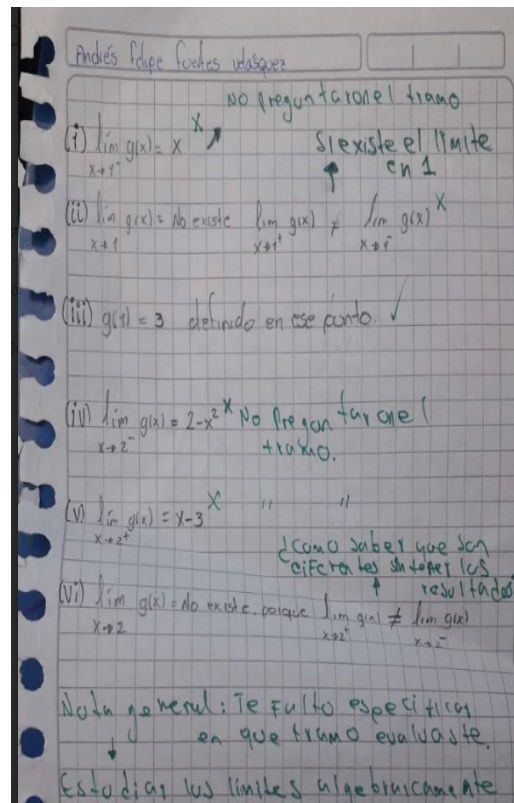 Andrés felipe fuertes velásquez
NO preguntaron el tramo
(i) lim g(x) = x X
x→1⁻
Si existe el limite
en 1
(ii) lim g(x) = No existe lim g(x) ≠ lim g(x) X
x→1 x→1⁺ x→1⁻
(iii) g(1) = 3 definido en ese punto. ✓
(iv) lim g(x) = 2-x² X No Preguntaron el
x→2⁻ tramo.
(v) lim g(x) = x-3 X " "
x→2⁺
¿Como saber que son
diferentes sin tener los
resultados
(vi) lim g(x) = No existe. porque lim g(x) ≠ lim g(x)
x→2 x→2⁺ x→2⁻
Nota general: Te Falto especificar
en que tramo evaluaste.
Estudiar los limites algebraicamente